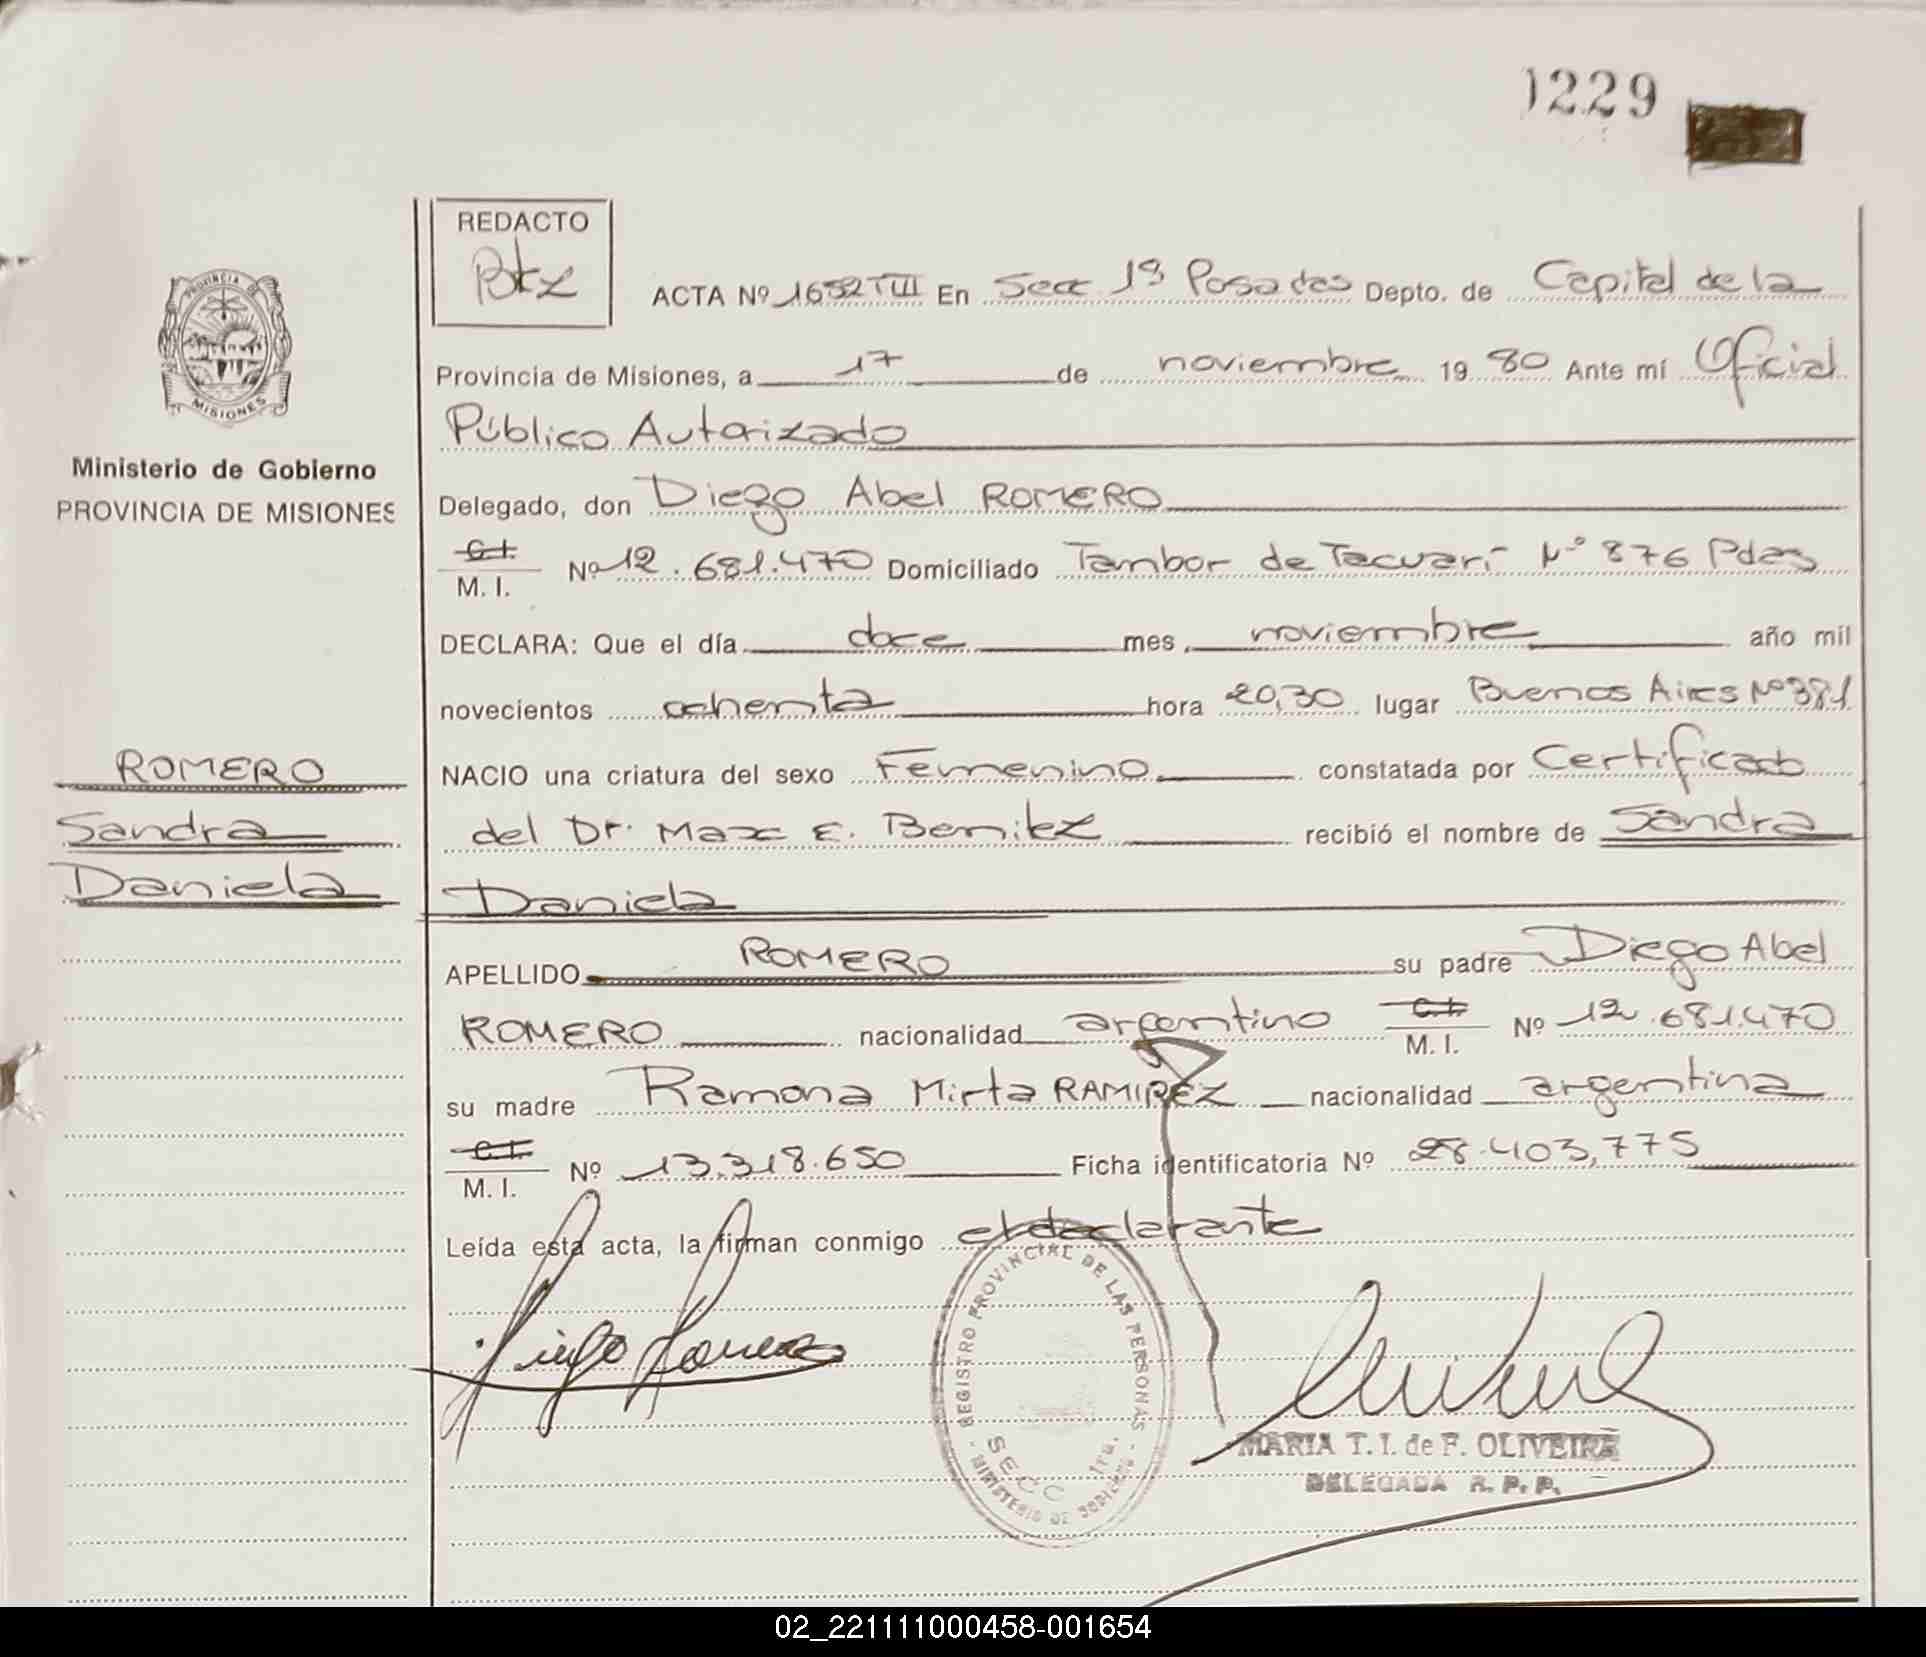 1229
REDACTO
Btz
ACTA Nº 1652 TIII En Secc 1ª Posadas Depto. de Capital de la
PROVINCIA DE
MISIONES
Provincia de Misiones, a 17 de noviembre 1980 Ante mí Oficial
Público Autorizado
Ministerio de Gobierno
PROVINCIA DE MISIONES
Delegado, don Diego Abel ROMERO
C.I.
M. I. Nº 12.681.470 Domiciliado Tambor de Tacuarí Nº 876 Pdas
DECLARA: Que el día doce mes noviembre año mil
novecientos ochenta hora 20,30 lugar Buenos Aires Nº 381
ROMERO
Sandra
Daniela
NACIO una criatura del sexo Femenino constatada por Certificado
del Dr. Max E. Benitez recibió el nombre de Sandra
Daniela
APELLIDO ROMERO su padre Diego Abel
ROMERO nacionalidad argentino C.I. M. I. Nº 12.681.470
su madre Ramona Mirta RAMIREZ nacionalidad argentina
C.I.
M. I. Nº 13.318.650 Ficha identificatoria Nº 28.403,775
Leída esta acta, la firman conmigo el declarante
REGISTRO PROVINCIAL DE LAS PERSONAS
SECC 1ra.
MINISTERIO DE GOBIERNO
MARIA T. I. de F. OLIVEIRA
DELEGADA R. P. P.
02_221111000458-001654